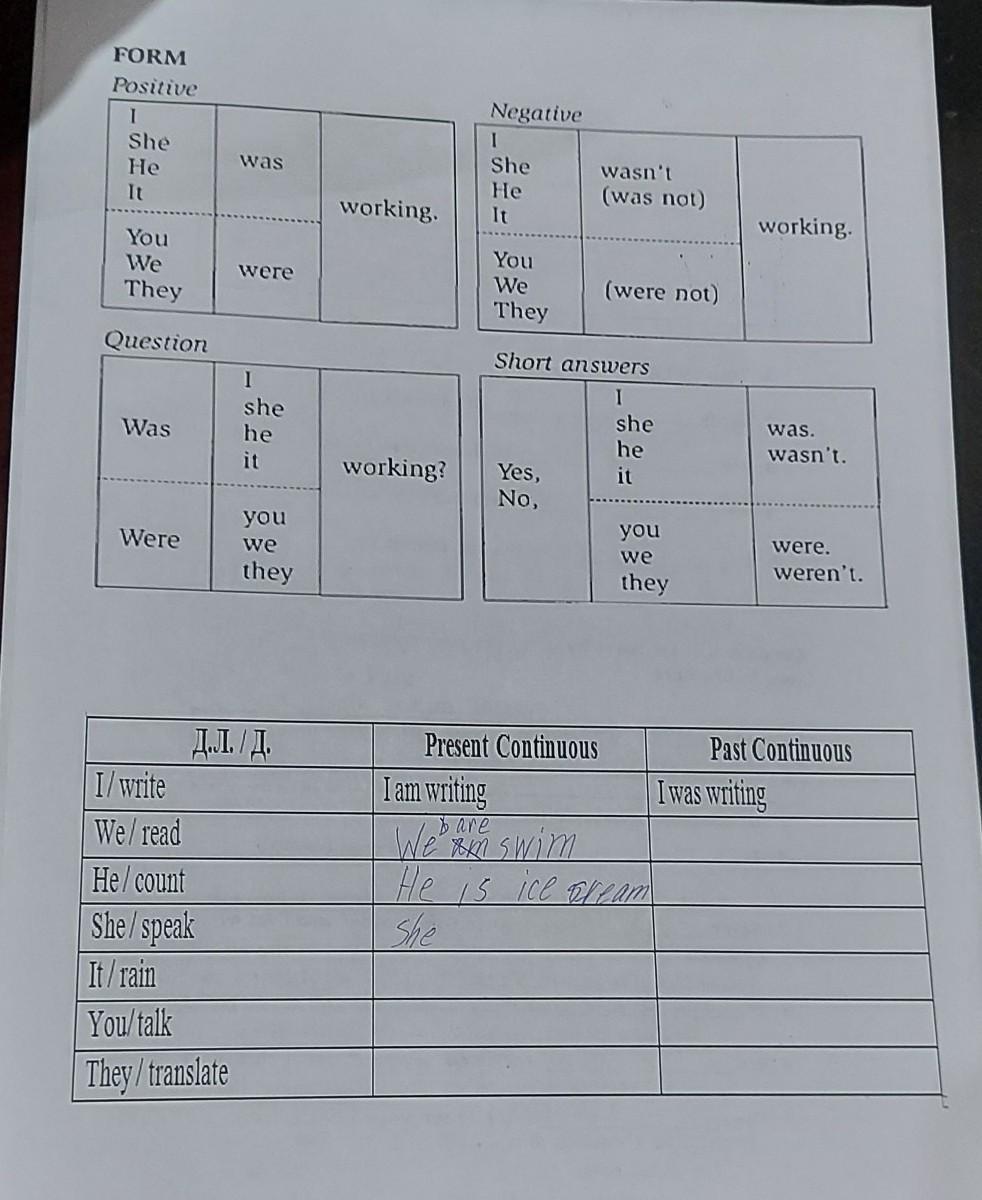 FORM
Positive
I
She
He
It
was
You
We
They
were
working.
Negative
I
She
He
It
wasn't
(was not)
You
We
They
(were not)
working.
Question
Was
I
she
he
it
Were
you
we
they
working?
Short answers
Yes,
No,
I
she
he
it
was.
wasn't.
you
we
they
were.
weren't.
Д.Л. / Д. Present Continuous Past Continuous
I / write I am writing I was writing
We / read We are swim
He / count He is ice cream
She / speak She
It / rain
You/ talk
They / translate